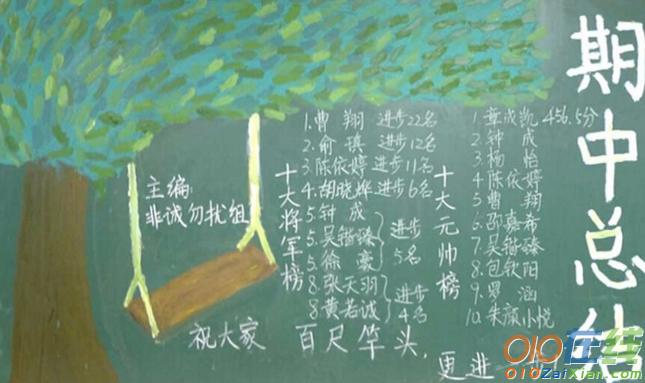 期中总结
主编:
非诚勿扰组
十大将军榜
1.曹翔 进步22名
2.俞填 进步12名
3.陈依婷 进步11名
4.胡晓烨 进步6名
5.钟成
5.吴锴臻
5.徐豪
进步5名
8.张天羽
8.黄若诚
进步4名
十大元帅榜
1.章成凯 456.5分
2.钟成
3.杨怡
4.陈依婷
5.曹翔
6.邵嘉希
7.吴锴臻
8.包钦阳
9.罗涵
10.朱颜小悦
祝大家 百尺竿头,
更进一步
010在线
010ZaiXian.com